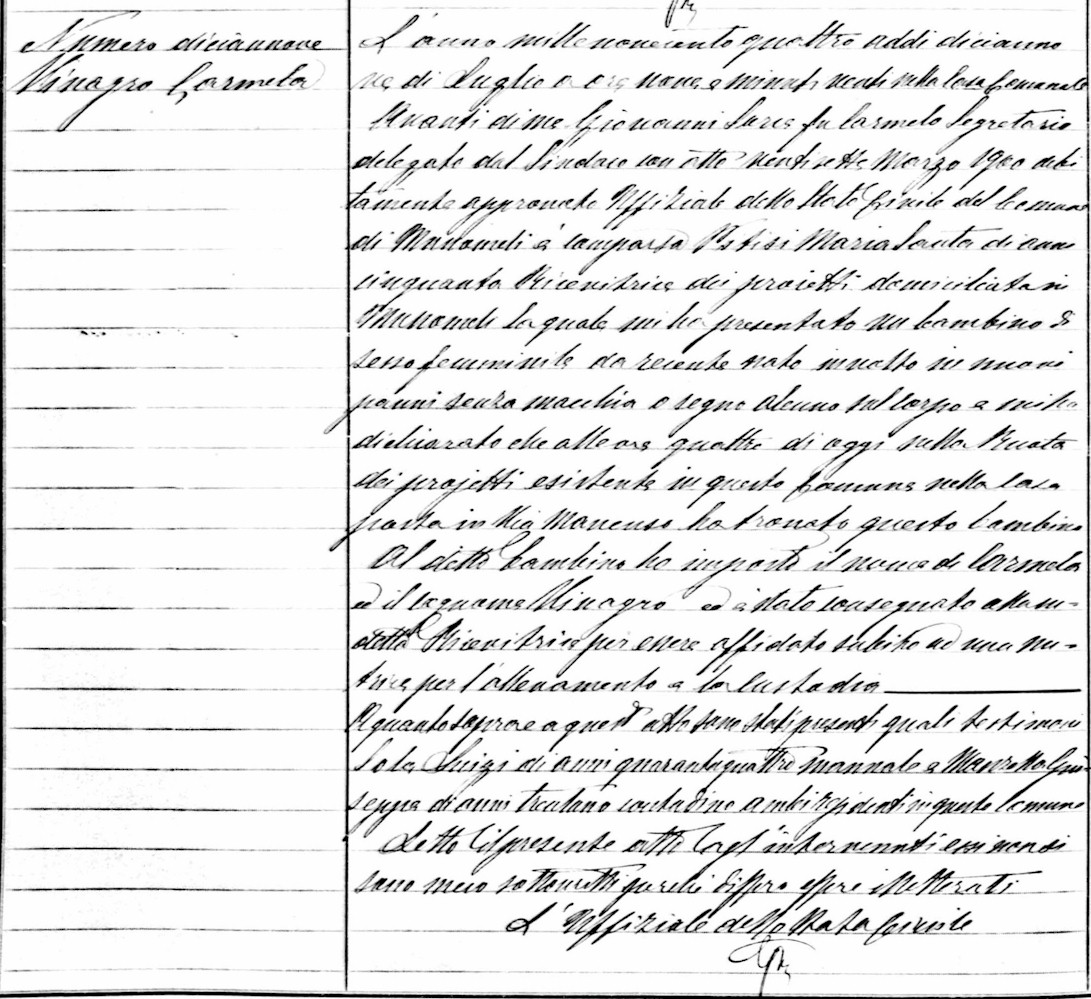 Numero diciannove
Vinagro Carmela
L'anno millenovecentoquattro addì dicianno
ve di Luglio a ore nove e minuti venti nella Casa Comunale
Avanti di me Giovanni fu Carmelo Segretario
delegato dal Sindaco con atto ventisette Marzo 1900 debi
tamente approvato Uffiziale dello Stato Civile del Comune
di è comparsa Pitisi Maria Santa di anni
cinquanta Ricevitrice dei proietti domiciliata in
la quale mi ha presentato un bambino di
sesso femminile da recente nato involto in nuovi
panni senza macchia o segno alcuno sul corpo e mi ha
dichiarato che alle ore quattro di oggi nella Ruota
dei projetti esistente in questo Comune nella Casa
posta in Via Mancuso ha trovato questo bambino
Al detto bambino ho imposto il nome di Carmela
ed il cognome Vinagro ed è stato consegnato alla su-
detta Ricevitrice per essere affidato subito ad una nu-
trice per l'allevamento e la Custodia
A quanto sopra e a quest'atto sono stati presenti quali testimoni
Luigi di anni quarantaquattro mannale e Giu
seppe di anni trentuno contadino ambi residenti in questo Comune
Letto il presente atto agl'intervenuti essi non si
sono meco sottoscritti perchè dissero essere illetterati
L'Uffiziale dello Stato Civile